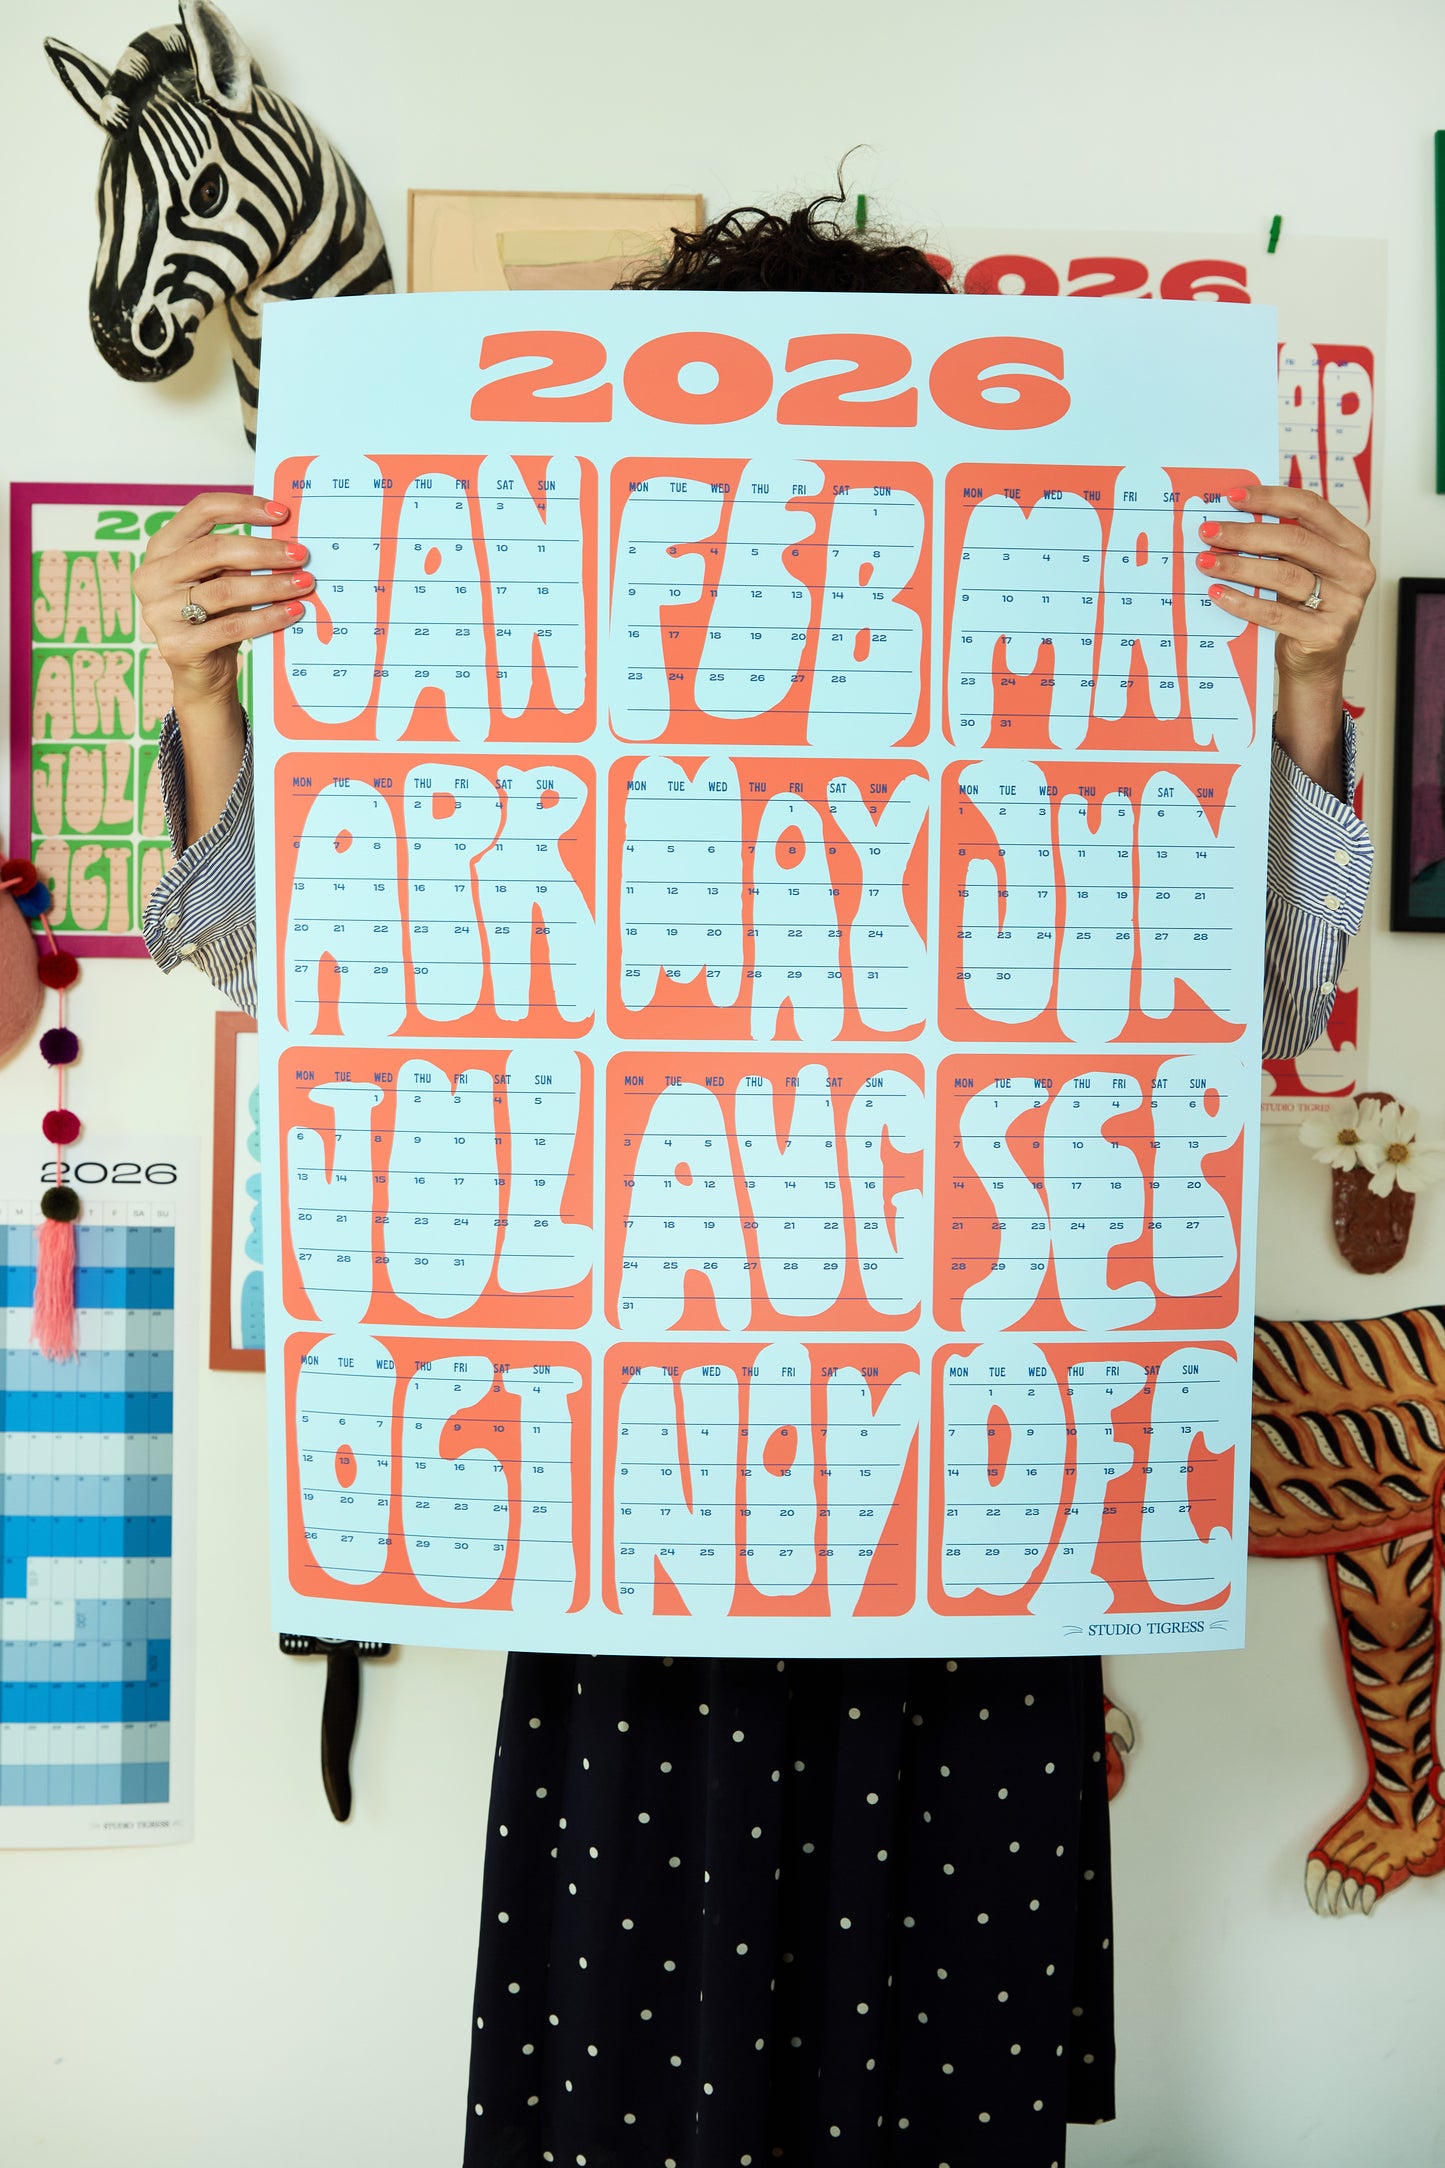 2026
JAN
MON TUE WED THU FRI SAT SUN
1 2 3 4
6 7 8 9 10 11
13 14 15 16 17 18
19 20 21 22 23 24 25
26 27 28 29 30 31
FEB
MON TUE WED THU FRI SAT SUN
1
2 3 4 5 6 7 8
9 10 11 12 13 14 15
16 17 18 19 20 21 22
23 24 25 26 27 28
MAR
MON TUE WED THU FRI SAT SUN
1
2 3 4 5 6 7
9 10 11 12 13 14 15
16 17 18 19 20 21 22
23 24 25 26 27 28 29
30 31
APR
MON TUE WED THU FRI SAT SUN
1 2 3 4 5
6 7 8 9 10 11 12
13 14 15 16 17 18 19
20 21 22 23 24 25 26
27 28 29 30
MAY
MON TUE WED THU FRI SAT SUN
1 2 3
4 5 6 7 8 9 10
11 12 13 14 15 16 17
18 19 20 21 22 23 24
25 26 27 28 29 30 31
JUN
MON TUE WED THU FRI SAT SUN
1 2 3 4 5 6 7
8 9 10 11 12 13 14
15 16 17 18 19 20 21
22 23 24 25 26 27 28
29 30
JUL
MON TUE WED THU FRI SAT SUN
1 2 3 4 5
6 7 8 9 10 11 12
13 14 15 16 17 18 19
20 21 22 23 24 25 26
27 28 29 30 31
AUG
MON TUE WED THU FRI SAT SUN
1 2
3 4 5 6 7 8 9
10 11 12 13 14 15 16
17 18 19 20 21 22 23
24 25 26 27 28 29 30
31
SEP
MON TUE WED THU FRI SAT SUN
1 2 3 4 5 6
7 8 9 10 11 12 13
14 15 16 17 18 19 20
21 22 23 24 25 26 27
28 29 30
OCT
MON TUE WED THU FRI SAT SUN
1 2 3 4
5 6 7 8 9 10 11
12 13 14 15 16 17 18
19 20 21 22 23 24 25
26 27 28 29 30 31
NOV
MON TUE WED THU FRI SAT SUN
1
2 3 4 5 6 7 8
9 10 11 12 13 14 15
16 17 18 19 20 21 22
23 24 25 26 27 28 29
30
DEC
MON TUE WED THU FRI SAT SUN
1 2 3 4 5 6
7 8 9 10 11 12 13
14 15 16 17 18 19 20
21 22 23 24 25 26 27
28 29 30 31
STUDIO TIGRESS
2026
STUDIO TIGRES
JAN
APR
JUL
OCT
2026
M T F SA SU
SEP
OCT
NOV